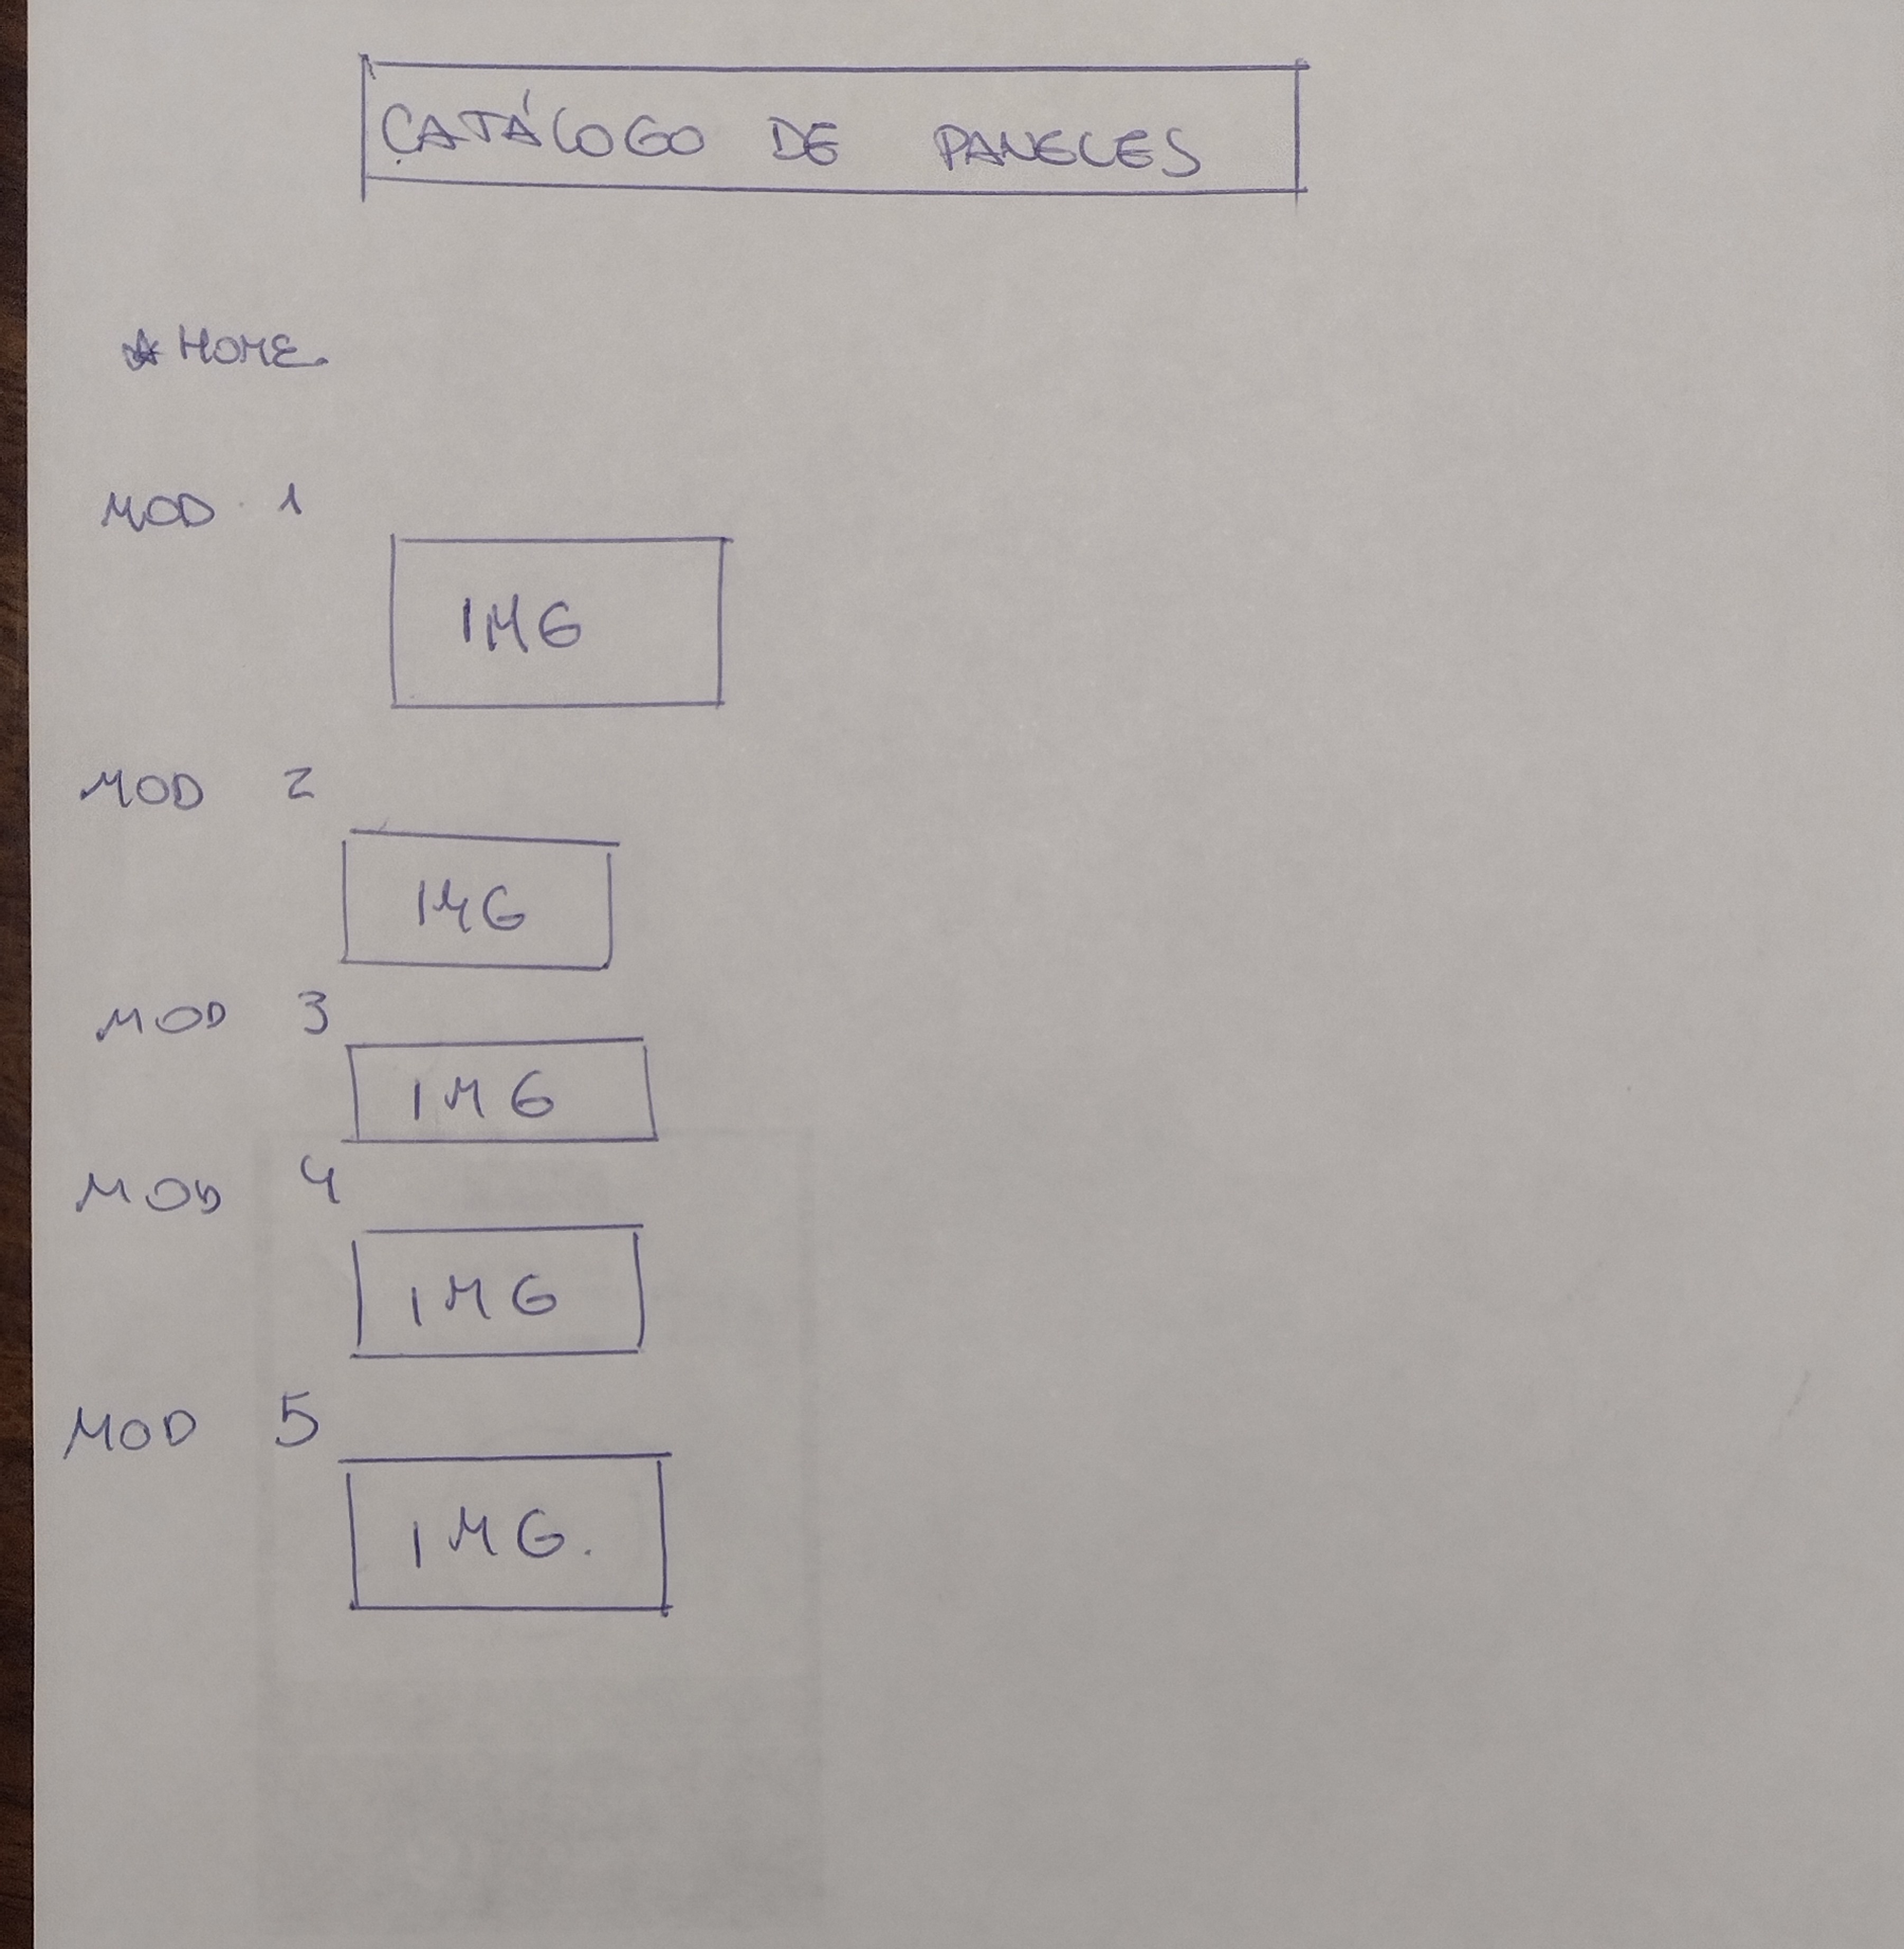 CATÁLOGO DE PANELES
* HOME
MOD 1
IMG
MOD 2
IMG
MOD 3
IMG
MOD 4
IMG
MOD 5
IMG.